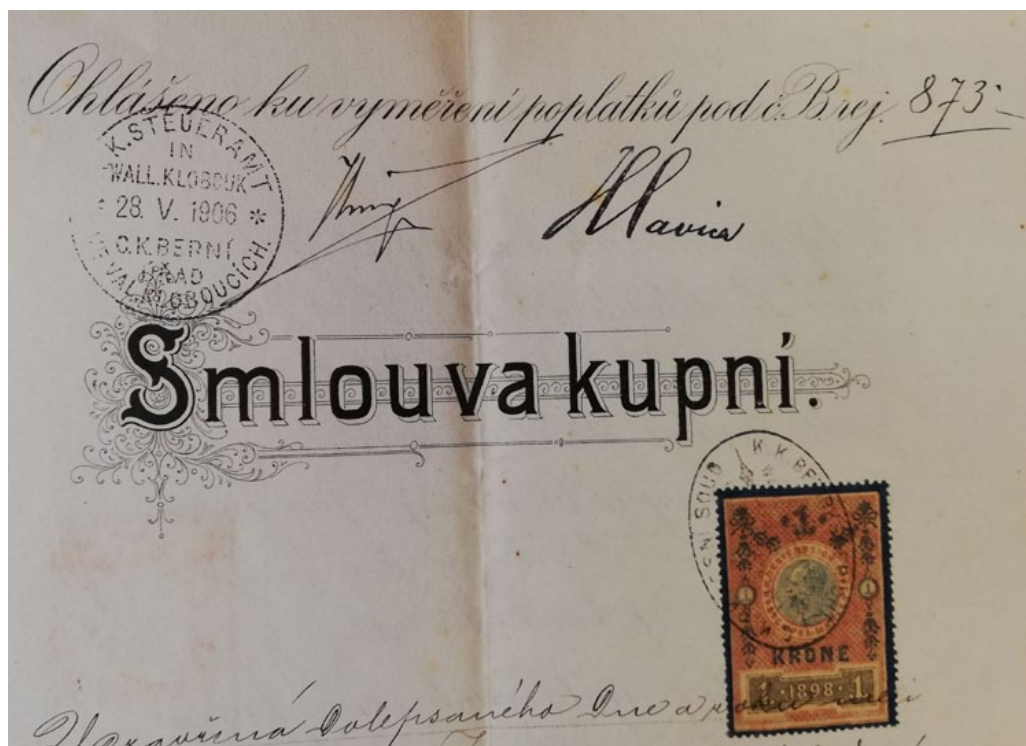 Ohlášeno ku vyměření poplatků pod č. B rej. 873
K. STEUERAMT
IN
WALL. KLOBOUK
28. V. 1906 *
C. K. BERNÍ
ÚŘAD
VAL. KLOBOUCÍCH.
Hlavica
Smlouva kupní.
SOUD
K. K. BE
1
1 1
KRONE
1 · 1898 · 1
dolepsaného dne a roku